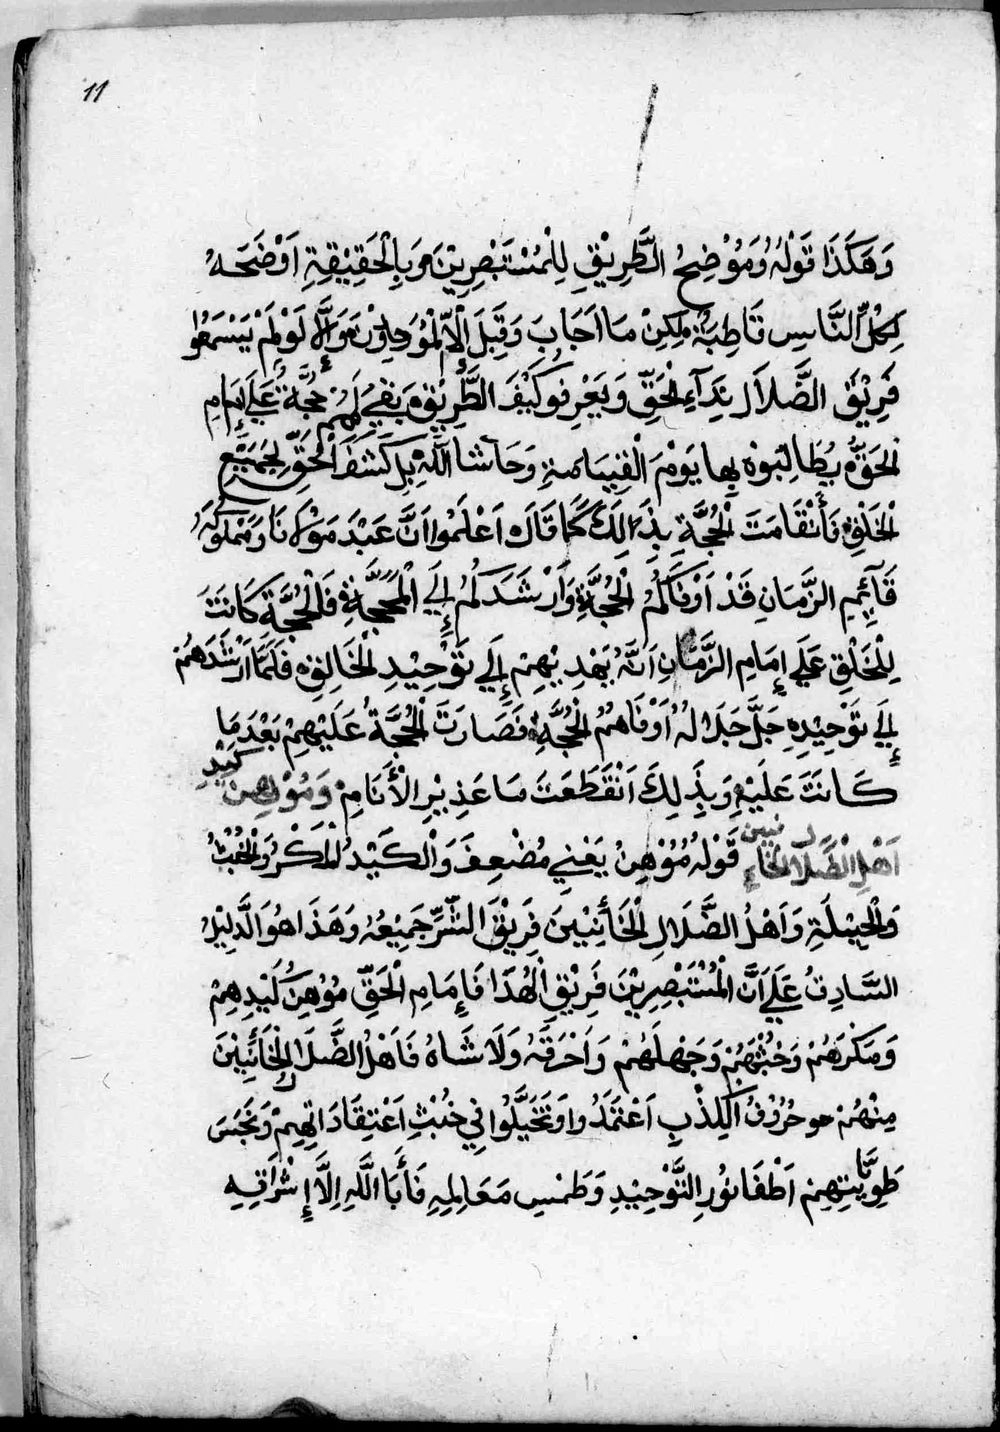 11
وَهَكَذَا قَوْلُهُ وَمُوْضِحُ الطَّرِيْقِ لِلْمُسْتَبْصِرِيْنَ وَبِالْحَقِيْقِةِ اَوْضَحَهُ
لِكُلِّ النَّاسِ قَاطِبَةً لٰكِنْ مَا اَجَابَ وَقِبَلَ الْاِّ الْمُوَحِدِيْنَ وَاِلَّا لَوْ لَمْ يَسْمَعُوا
فَرِيْقُ الضَّلَالِ نِدَآءِ الْحَقِّ وَيَعْرِفُو كَيْفَ الطَّرِيْقِ بَقِيَ لَهُمْ حُجَّةٌ عَلَي اِمَامِ
الْحَقِّ يُطَالِبُوْهُ بِهَا يَوْمَ الْقِيَامَةِ وَحَاشَا اللّٰهِ بَلْ كَشَفَ الْحَقِّ لِجَمِيْعِ
الْخَلْقِ فَأَنْقَامَتَ الْحُجَّةِ بِذَالِكَ كَمَا قَالَ اَعْلَمُوا اَنَّ عَبْدَ مَوْلَانَا وَمَمْلُوكَهُ
قَآئِمِ الزَّمَانِ قَدْ اَوْفَاكُمُ الْحُجَّةِ وَاَرْشَدَكُمْ اِلَي الْمَحَجَّةِ فَالْحُجَّةُ كَانَتَ
لِلْخَلْقِ عَلَي اِمَامِ الزَّمَانِ اَنَّهُ يَهْدِيْهِمْ اِلَي تَوْحِيْدِ الْخَالِقِ فَلَمَّا اَرْشَدَهُمْ
اِلَي تَوْحِيْدِهِ جَلَّ جَلَالُهُ اَوْفَاهُمُ الْحُجَّةِ فَصَارَتَ الْحُجَّةُ عَلَيْهِمْ بَعْدَ مَا
كَانَتَ عَلَيْهِ وَبِذَلِكَ اَنْقَطَعَتَ مَعَاذِيْرِ الْأَنَامِ وَمُوْهِنُ كَيْدِ
اَهْلِ الضَّلَالِ الْخَائِنِيْنَ قَوْلُهُ مُوْهِنُ يَعْنِي مُضْعِفَ وَالْكَيْدُ الْمَكْرُ وَالْخُبْثُ
وَالْحِيْلَةِ وَاَهْلُ الضَّلَالِ الْخَأَئِنِيْنَ فَرِيْقَ الشَّرِّ جَمِيْعُهُ وَهَذَا هُوَ الدَّلِيْلُ
السَّادِتُ عَلَي اَنَّ الْمُسْتَبْصِرِيْنَ فَرِيْقِ الْهُدَا فَاِمَامِ الْحَقِّ مُوْهِنُ كَيْدِهِمْ
وَمَكْرَهُمْ وَخُبْثَهُمْ وَجَهْلَهُمْ وَاَحْرَقَهُ وَلَاشَاهُ فَاَهْلُ الضَّلَالِ الْخَأَئِنِيْنَ
مِنْهُمْ هو حُرُوْفُ الْكِذْبِ اَعْتَمَدُوا وَتَخَيَّلُوا فِي خُبْثِ اَعْتِقَادَاتِهِمْ وَنَجَسَ
طَوِيَّاتِهِمْ اَطْفَا نُورِ التَّوْحِيْدِ وَطَمْسِ مَعَالِمِهِ فَأَبَا اللّٰهِ اِلَّا اِشْرَاقِهِ